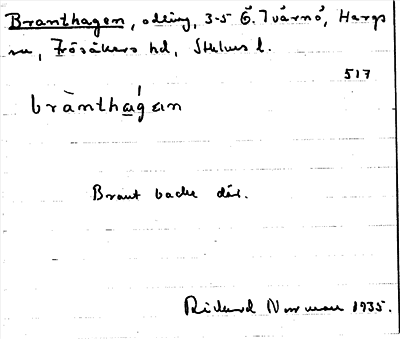 Branthagen, odling, 3-5 Ö. Tvärnö, Hargs
sn, Frösåkers hd, Sthlms l.
517
bràntha̲´gɛn
Brant backe där.
Rickard Norrman 1935.